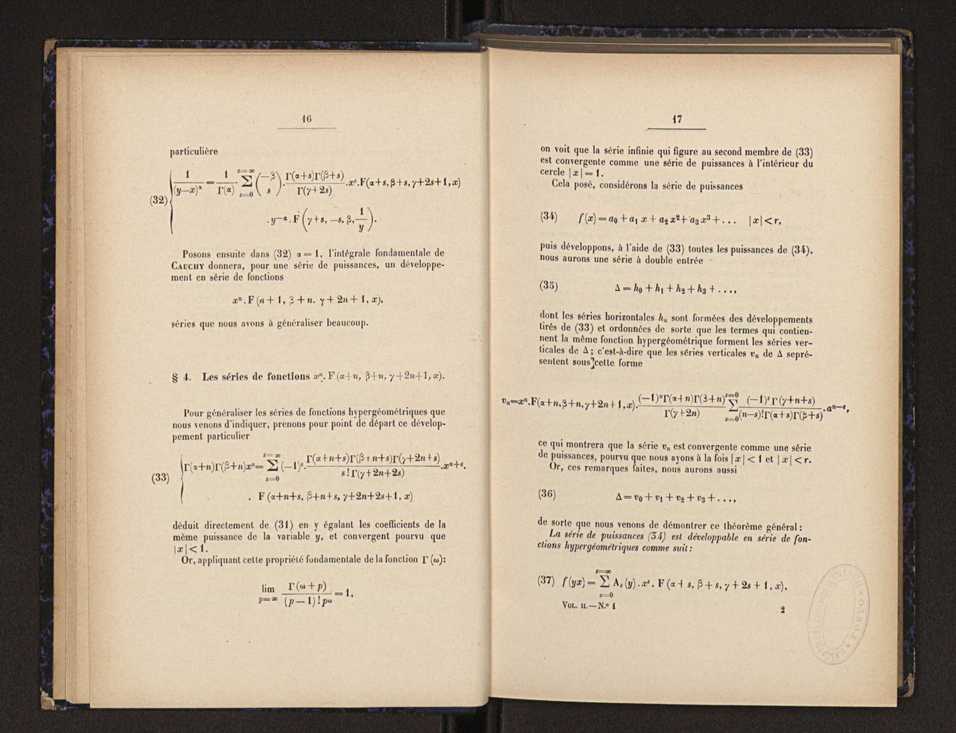 16
particulière
(32) { 1/(y—x)^α = 1/Γ(α) Σ_{s=0}^{s=∞} (—β s) . Γ(α+s)Γ(β+s)/Γ(γ+2s) . x^s . F(α+s, β+s, γ+2s+1, x)
. y^{—α} . F(γ+s, —s, β, 1/y).
Posons ensuite dans (32) α = 1, l'intégrale fondamentale de
CAUCHY donnera, pour une série de puissances, un développe-
ment en série de fonctions
x^n . F (n + 1, β + n. γ + 2n + 1, x),
séries que nous avons à généraliser beaucoup.
§ 4. Les séries de fonctions x^n. F (α+n, β+n, γ+2n+1, x).
Pour généraliser les séries de fonctions hypergéométriques que
nous venons d'indiquer, prenons pour point de départ ce dévelop-
pement particulier
(33) { Γ(α+n)Γ(β+n)x^n = Σ_{s=0}^{s=∞} (—1)^s . Γ(α+n+s)Γ(β+n+s)Γ(γ+2n+s)/s! Γ(γ+2n+2s) . x^{n+s}.
. F (α+n+s, β+n+s, γ+2n+2s+1, x)
déduit directement de (31) en y égalant les coefficients de la
même puissance de la variable y, et convergent pourvu que
|x| < 1.
Or, appliquant cette propriété fondamentale de la fonction Γ (ω):
lim_{p=∞} Γ(ω + p)/(p — 1)! p^ω = 1,
17
on voit que la série infinie qui figure au second membre de (33)
est convergente comme une série de puissances à l'intérieur du
cercle |x| = 1.
Cela posé, considérons la série de puissances
(34) f(x) = a₀ + a₁ x + a₂ x² + a₃ x³ + . . . |x| < r,
puis développons, à l'aide de (33) toutes les puissances de (34),
nous aurons une série à double entrée
(35) Δ = h₀ + h₁ + h₂ + h₃ + . . . ,
dont les séries horizontales hₙ sont formées des développements
tirés de (33) et ordonnées de sorte que les termes qui contien-
nent la même fonction hypergéométrique forment les séries ver-
ticales de Δ; c'est-à-dire que les séries verticales vₙ de Δ sepré-
sentent sous cette forme
vₙ=x^n.F(α+n,β+n,γ+2n+1,x). (—1)^n Γ(α+n)Γ(β+n)/Γ(γ+2n) Σ_{s=0}^{s=0} (—1)^s Γ(γ+n+s)/(n—s)!Γ(α+s)Γ(β+s) . a^{n—s},
ce qui montrera que la série vₙ est convergente comme une série
de puissances, pourvu que nous ayons à la fois |x| < 1 et |x| < r.
Or, ces remarques faites, nous aurons aussi
(36) Δ = v₀ + v₁ + v₂ + v₃ + . . . ,
de sorte que nous venons de démontrer ce théorème général:
La série de puissances (34) est développable en série de fon-
ctions hypergéométriques comme suit:
(37) f(yx) = Σ_{s=0}^{s=∞} A_s (y) . x^s . F (α + s, β + s, γ + 2s + 1, x),
VOL. II.—N.º 1
2